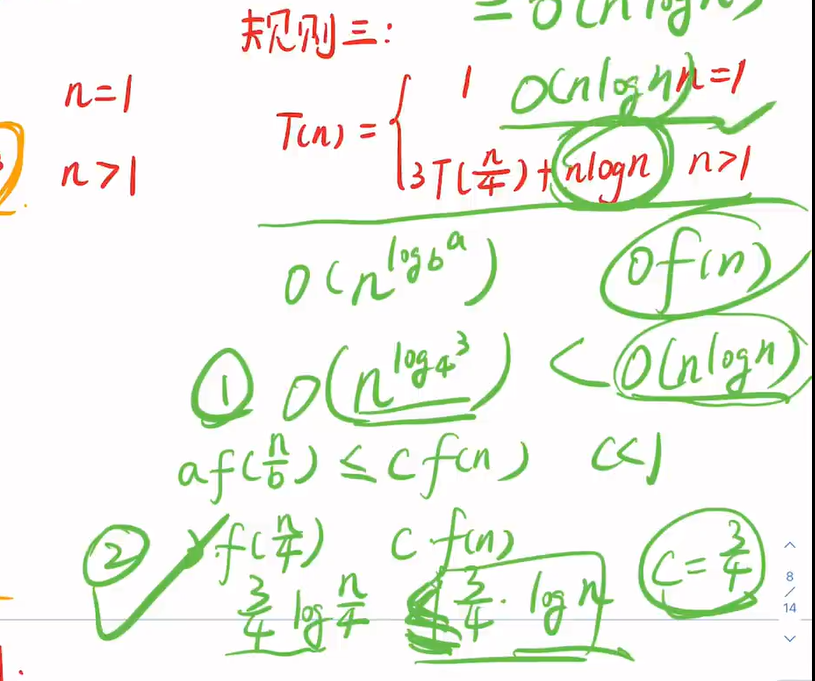 = O(nlogn)
规则三:
n=1
1 O(nlogn) n=1
T(n) =
n>1
3T(n/4) + nlogn n>1
O(n^log_b^a) O f(n)
① O(n^log_4^3) < O(nlogn)
af(n/b) ≤ cf(n) c<1
② f(n/4) c f(n) c = 3/4
3/4 log n/4 ≤ 3/4 · log n
8
/
14